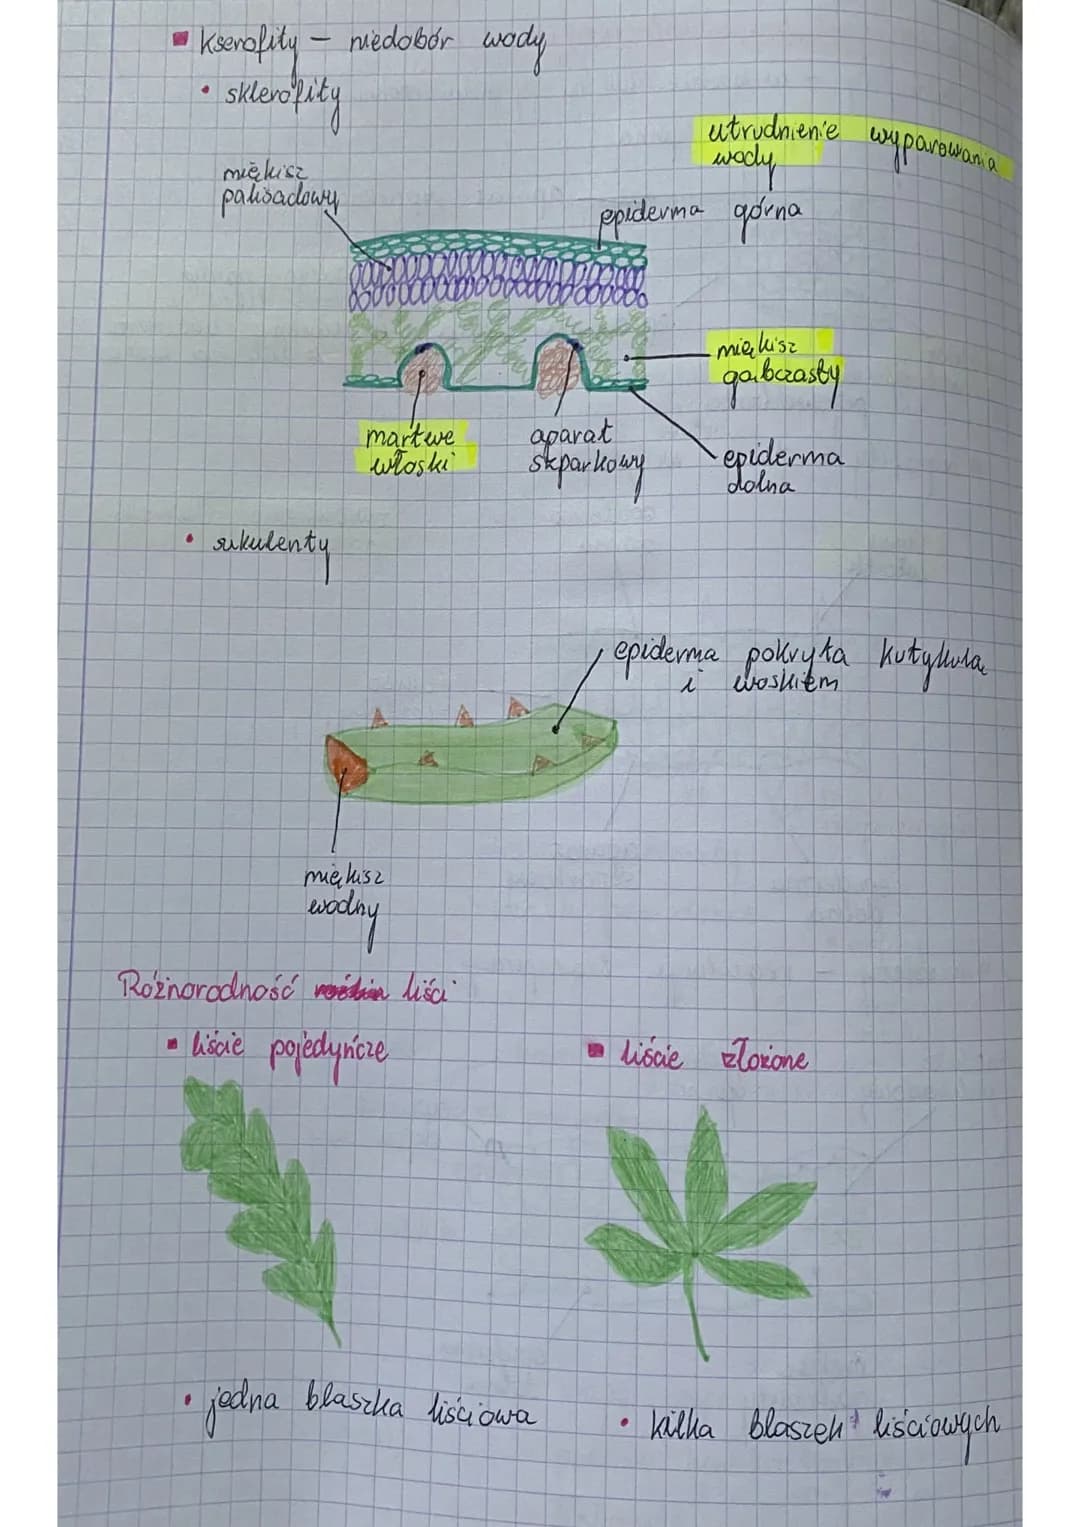 Kserofity – niedobór wody
sklerofity
utrudnienie wyparowania
wody
miękisz
palisadowy
epiderma górna
miękisz
gąbczasty
martwe
włoski
aparat
skparkowy
epiderma
dolna
sukulenty
epiderma pokryta kutykulą
i woskiem
miękisz
wodny
Różnorodność liści
liście pojedyńcze
liście złożone
jedna blaszka liściowa
kilka blaszek liściowych